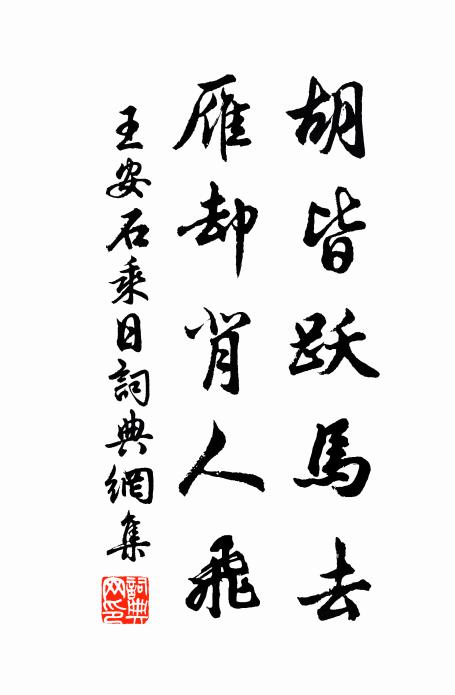 胡皆跃馬去
雁却背人飛
王安石乘日詞典網集
詞典网印